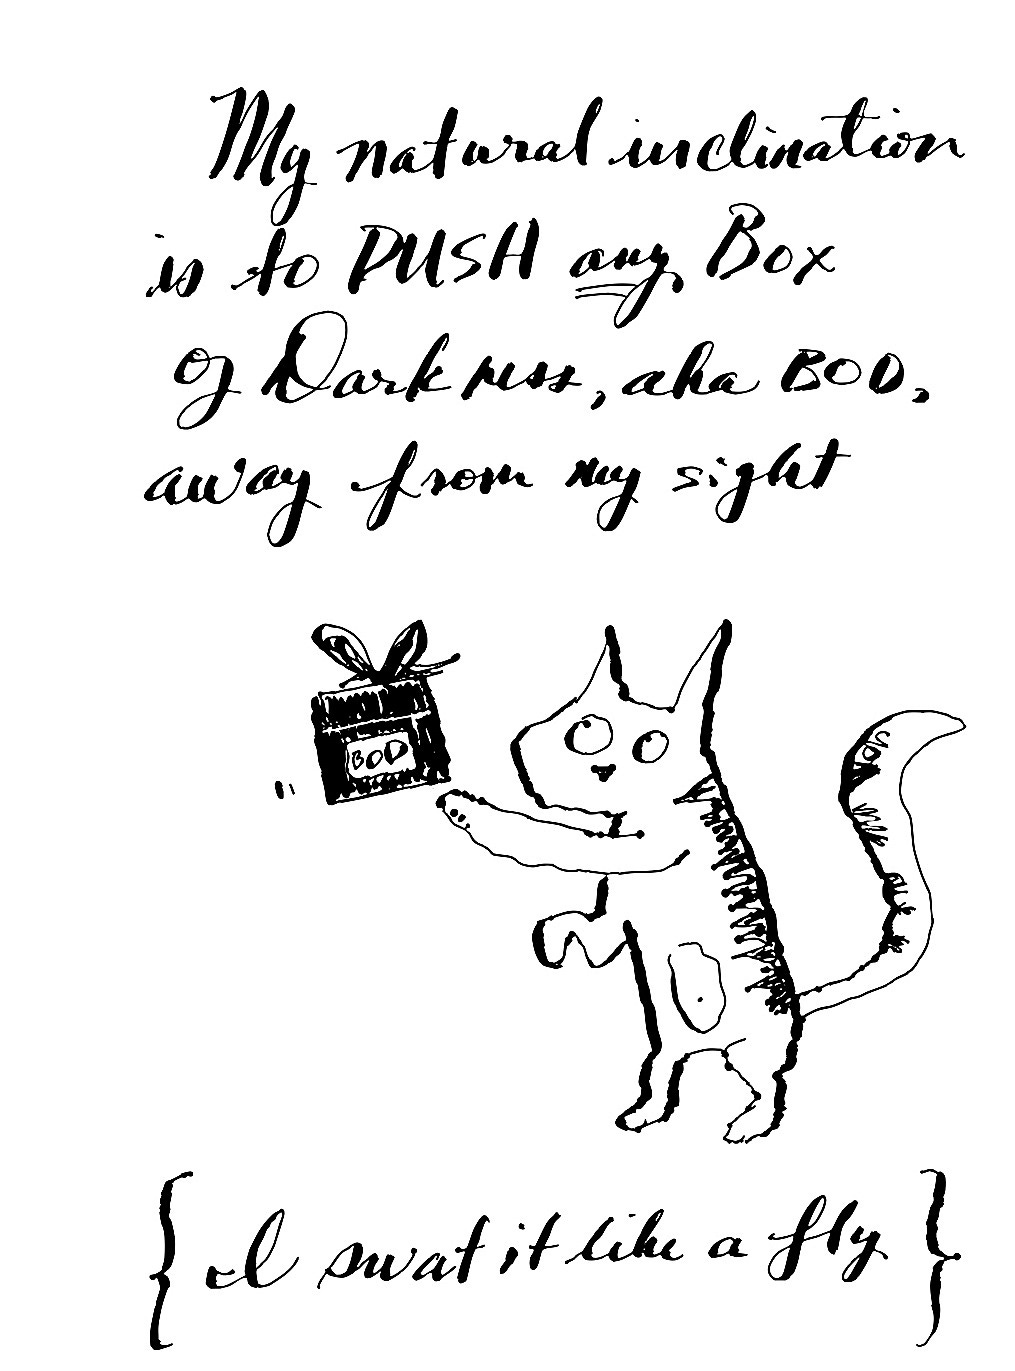 My natural inclination
is to PUSH any Box
of Darkness, aka BOD,
away from my sight
BOD
{ I swat it like a fly }